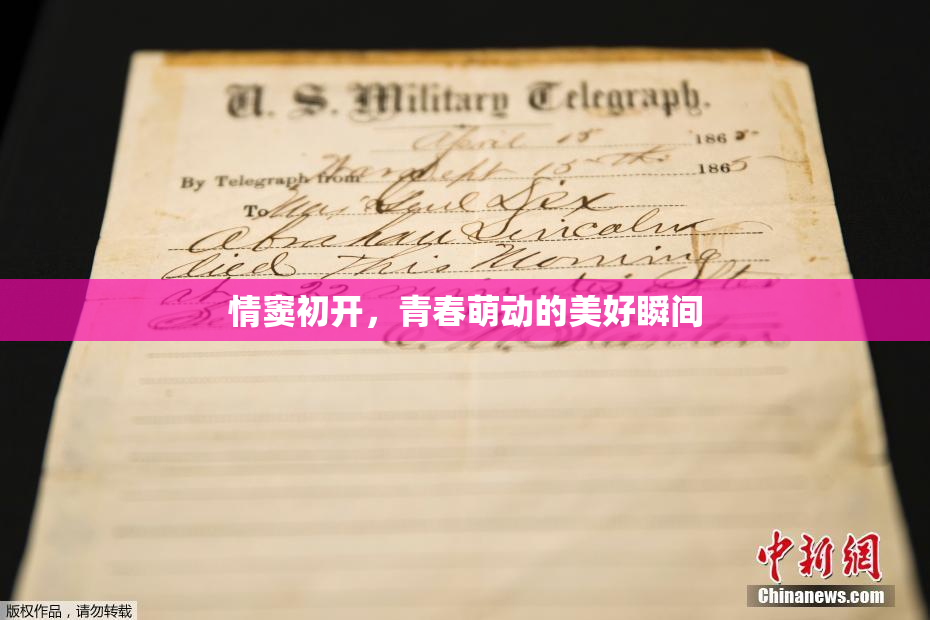 U. S. Military Telegraph.
April 15 1865
By Telegraph from War Dept 15th 1865
To Maj Genl Dix
Abraham Lincoln
died This Morning
at 22 minutes after
情窦初开，青春萌动的美好瞬间
E. M. Stanton
中新网
Chinanews.com
版权作品，请勿转载